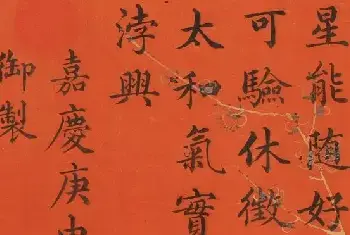 星能随好
可驗休徵
太和氣實
浡興
嘉慶庚申
御製